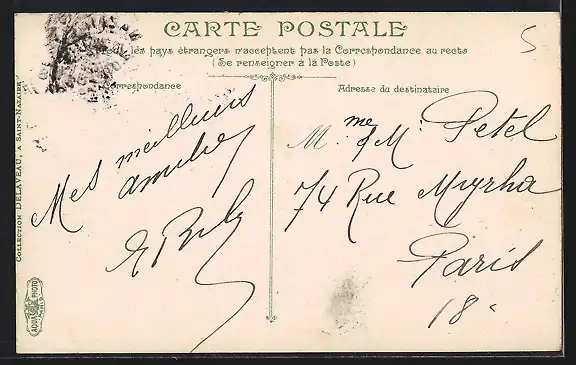 CARTE POSTALE
Tous les pays étrangers n'acceptent pas la Correspondance au recto
(Se renseigner à la Poste)
Correspondance
Mes meilleurs
amitiés
Adresse du destinataire
Mme & M. Petel
74 Rue Myrha
Paris
18e
5
COLLECTION DELAVEAU, A SAINT-NAZAIRE
AQUA PHOTO